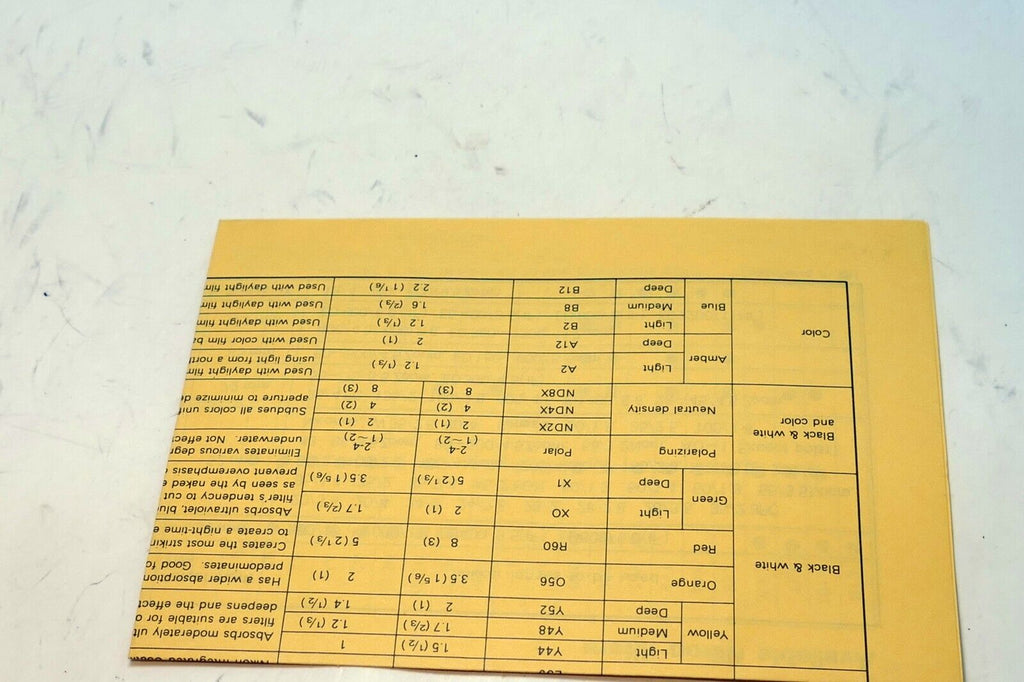 Black & white Yellow Light Y44 1.5 (1/2) 1 Absorbs moderately
Medium Y48 1.7 (2/3) 1.2 (1/3) filters are suitable for
Deep Y52 2 (1) 1.4 (1/2) deepens and the effect
Orange O56 3.5 (1 5/6) 2 (1) Has a wider absorption
predominates. Good
Red R60 8 (3) 5 (2 1/3) Creates the most
to create a night-time
Green Light XO 2 (1) 1.7 (2/3) Absorbs ultraviolet,
filter's tendency to cut
Deep X1 5 (2 1/3) 3.5 (1 5/6) as seen by the naked
prevent overemphasis
Black & white
and color
Polarizing Polar 2-4
(1~2) 2-4
(1~2) Eliminates various
underwater. Not
Neutral density ND2X 2 (1) 2 (1)
ND4X 4 (2) 4 (2) Subdues all colors
ND8X 8 (3) 8 (3) aperture to minimize
Color Amber Light A2 1.2 (1/3) Used with daylight film
using light from a north
Deep A12 2 (1) Used with color film
Blue Light B2 1.2 (1/3) Used with daylight film
Medium B8 1.6 (2/3) Used with daylight film
Deep B12 2.2 (1 1/6) Used with daylight film